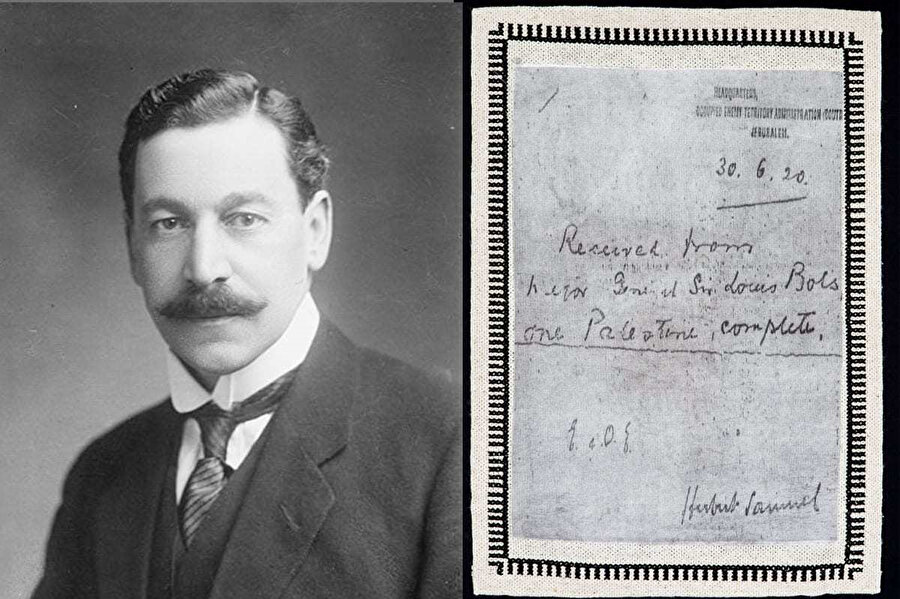 HEADQUARTERS,
OCCUPIED ENEMY TERRITORY ADMINISTRATION (SOUTH
JERUSALEM.
30. 6. 20.
Received from
Major General Sir Louis Bols
one Palestine, complete.
E. & O. E.
Herbert Samuel